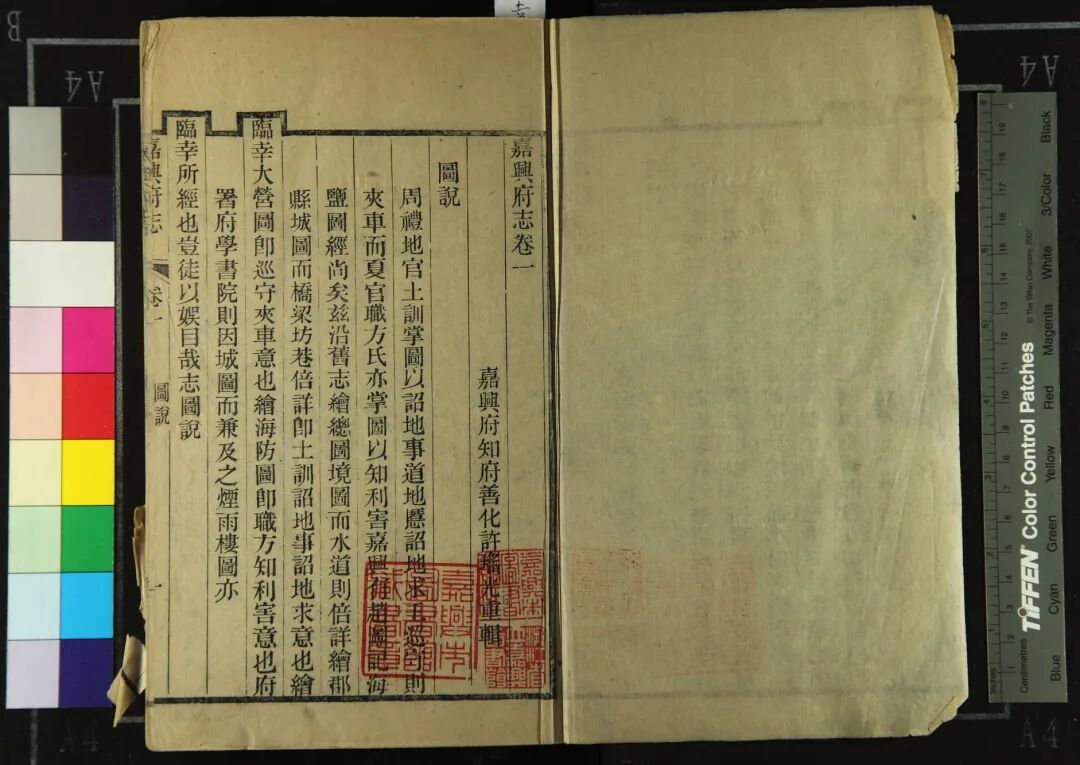 嘉興府志卷一
嘉興府知府善化許瑤光重輯
圖說
周禮地官土訓掌圖以詔地事道地慝詔地求王巡守則
夾車而夏官職方氏亦掌圖以知利害嘉興有趙圖記海
鹽圖經尚矣茲沿舊志繪總圖境圖而水道則倍詳繪郡
縣城圖而橋梁坊巷倍詳卽土訓詔地事詔地求意也繪
臨幸大營圖卽巡守夾車意也繪海防圖卽職方知利害意也府
署府學書院則因城圖而兼及之煙雨樓圖亦
臨幸所經也豈徒以娛目哉志圖說
嘉興府志
卷一
圖說
一
B
A4
A4
A4
A4
TIFFEN Color Control Patches
© The Tiffen Company, 2007
Centimetres
Inches
Blue
Cyan
Green
Yellow
Red
Magenta
White
3/Color
Black